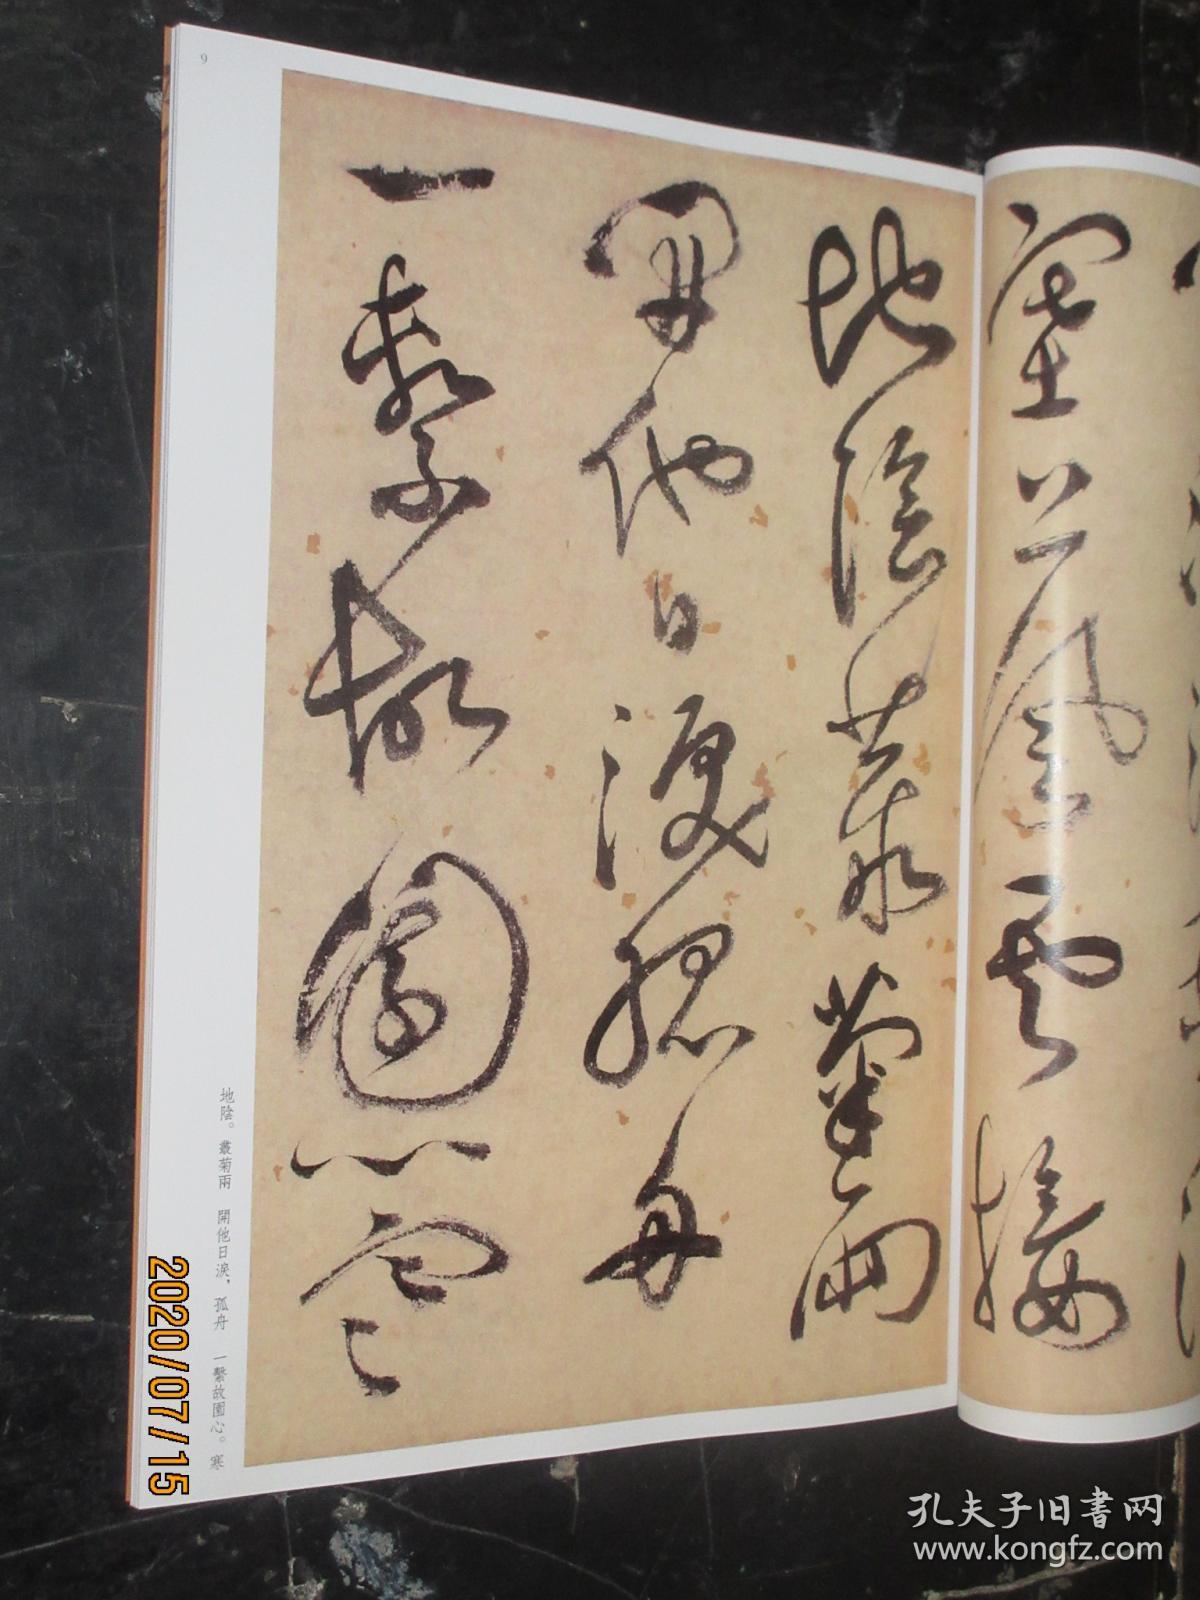 塞上風雲接
地陰叢菊兩
開他日淚孤舟
一繫故園心寒
9
地陰。叢菊兩　開他日淚，孤舟　一繫故園心。寒
2020/07/15
孔夫子旧書网
www.kongfz.com